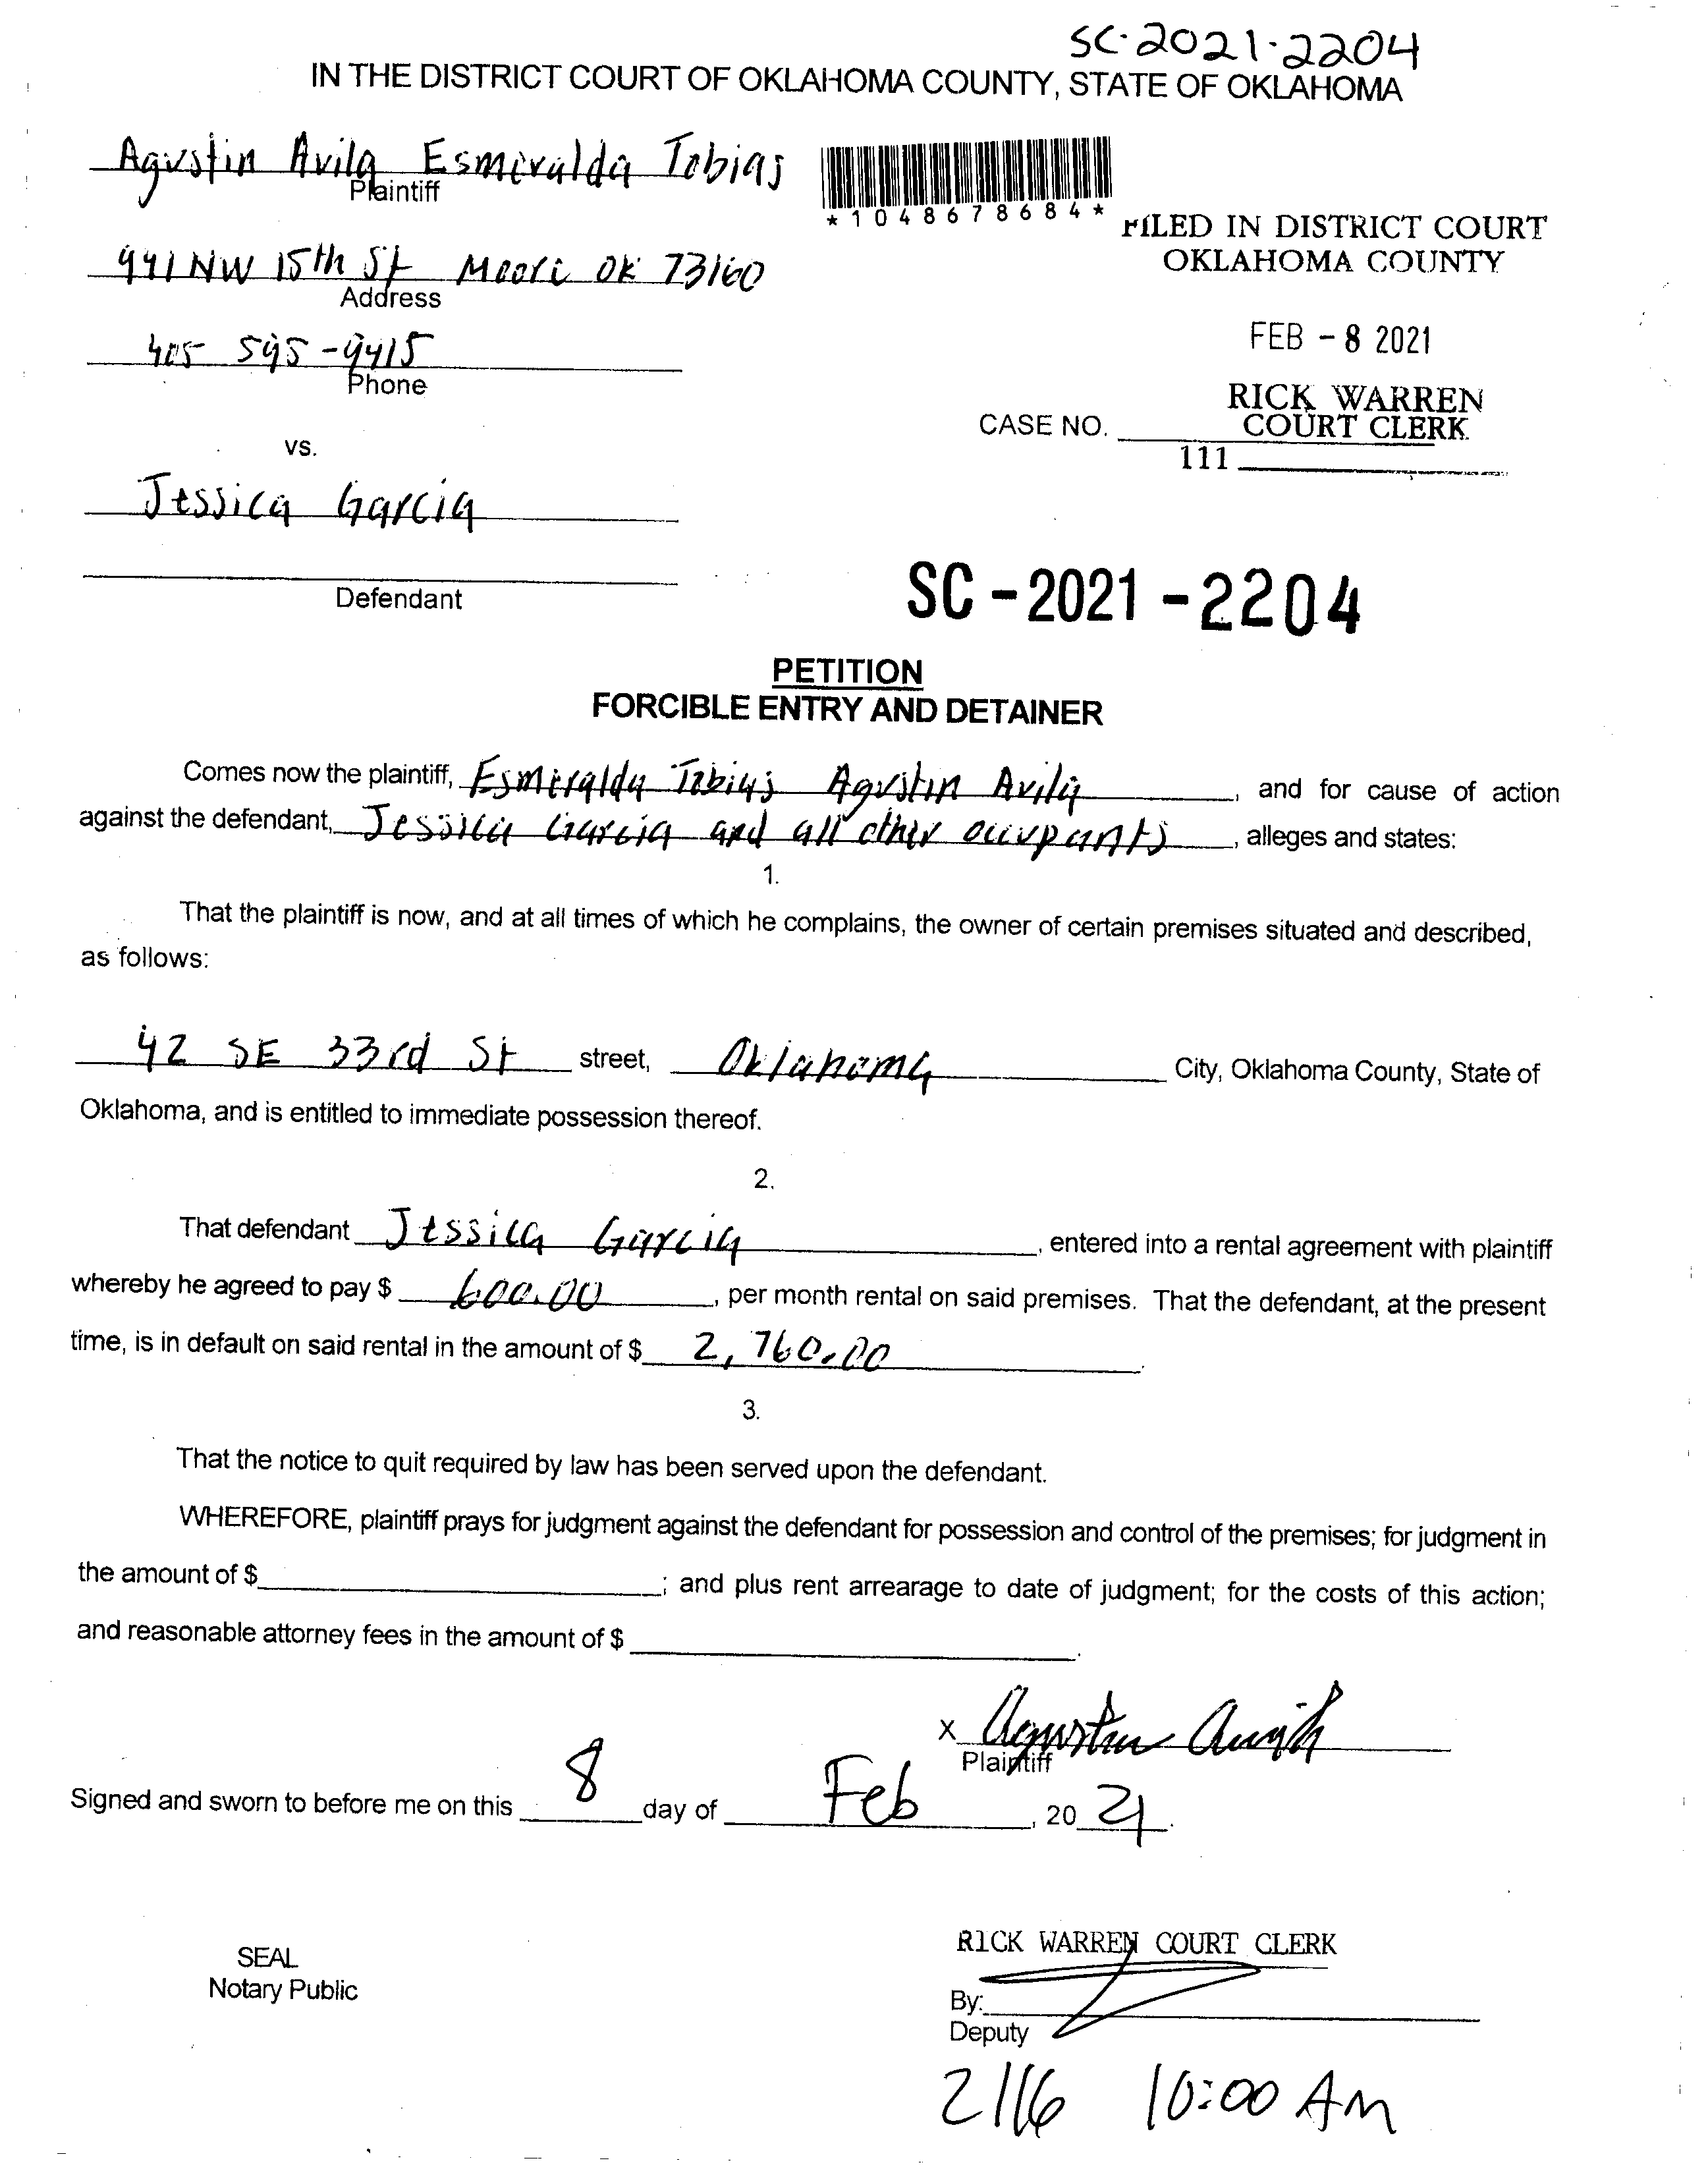 SC-2021-2204
IN THE DISTRICT COURT OF OKLAHOMA COUNTY, STATE OF OKLAHOMA
Agustin Avila Esmeralda Tobias
Plaintiff
*1048678684*
FILED IN DISTRICT COURT
OKLAHOMA COUNTY
941 NW 15th St Moore OK 73160
Address
FEB - 8 2021
405 595-9415
Phone
RICK WARREN
COURT CLERK
CASE NO.
111
vs.
Jessica Garcia
Defendant
SC - 2021 - 2204
PETITION
FORCIBLE ENTRY AND DETAINER
Comes now the plaintiff, Esmeralda Tobias Agustin Avila, and for cause of action
against the defendant, Jessica Garcia and all other occupants, alleges and states:
1.
That the plaintiff is now, and at all times of which he complains, the owner of certain premises situated and described,
as follows:
42 SE 33rd St street, Oklahoma City, Oklahoma County, State of
Oklahoma, and is entitled to immediate possession thereof.
2.
That defendant Jessica Garcia, entered into a rental agreement with plaintiff
whereby he agreed to pay $ 600.00, per month rental on said premises. That the defendant, at the present
time, is in default on said rental in the amount of $ 2,760.00.
3.
That the notice to quit required by law has been served upon the defendant.
WHEREFORE, plaintiff prays for judgment against the defendant for possession and control of the premises; for judgment in
the amount of $ ; and plus rent arrearage to date of judgment; for the costs of this action;
and reasonable attorney fees in the amount of $ .
X Agustin Avila
Plaintiff
Signed and sworn to before me on this 8 day of Feb, 2021.
SEAL
Notary Public
RICK WARREN COURT CLERK
By:
Deputy
2/16 10:00 AM